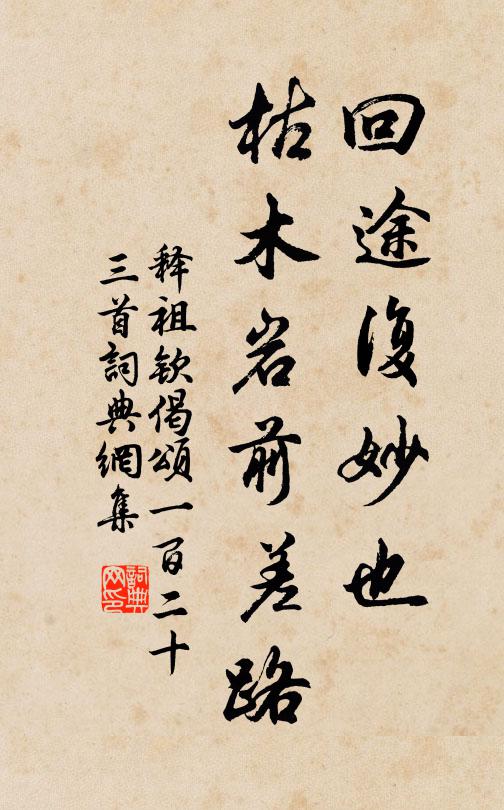 回途復妙也
枯木岩前差路
释祖钦偈頌一百二十
三首詞典網集
詞典
网印